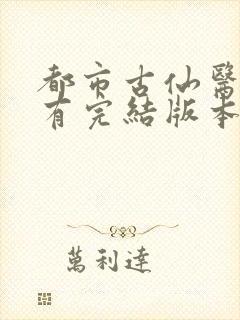 都市古仙醫
有完結版本
萬利達